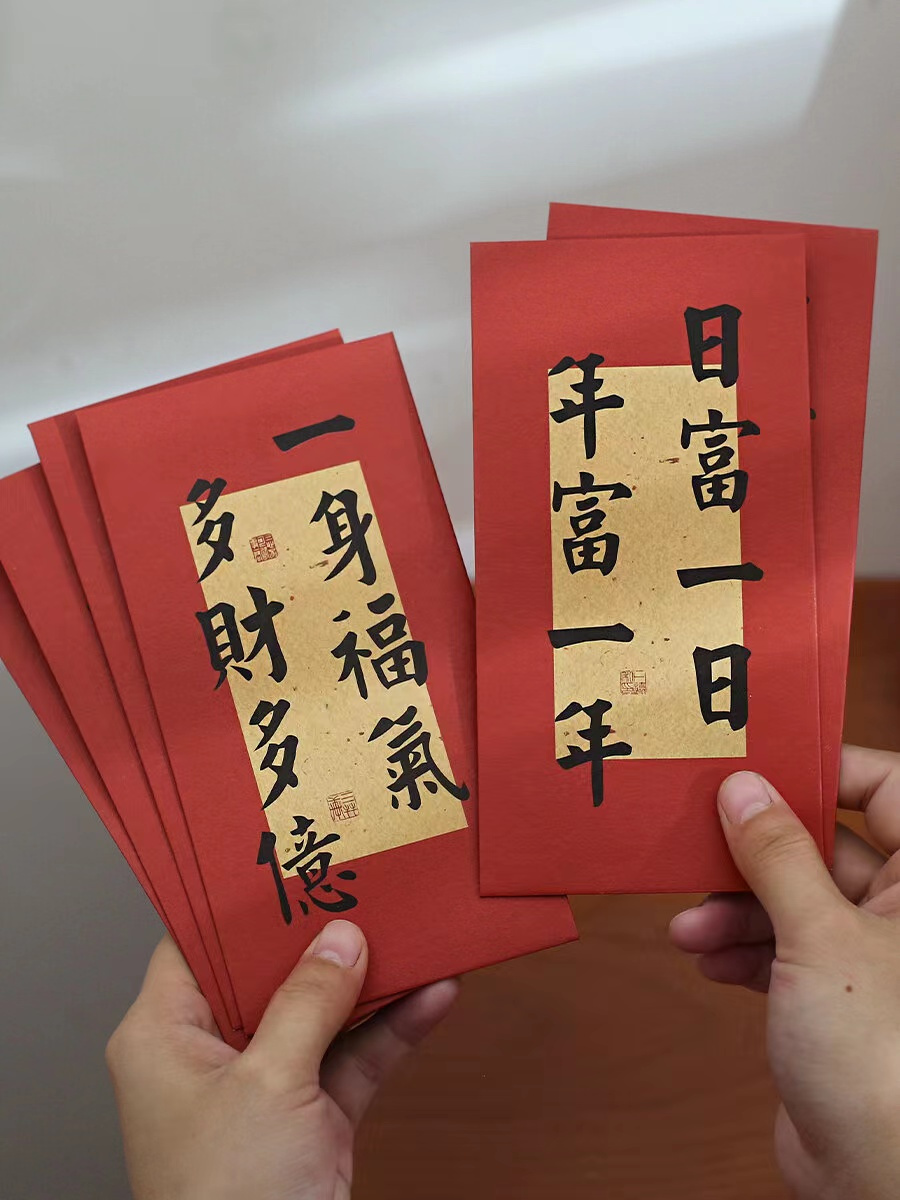 一身福氣
多財多億
日富一日
年富一年